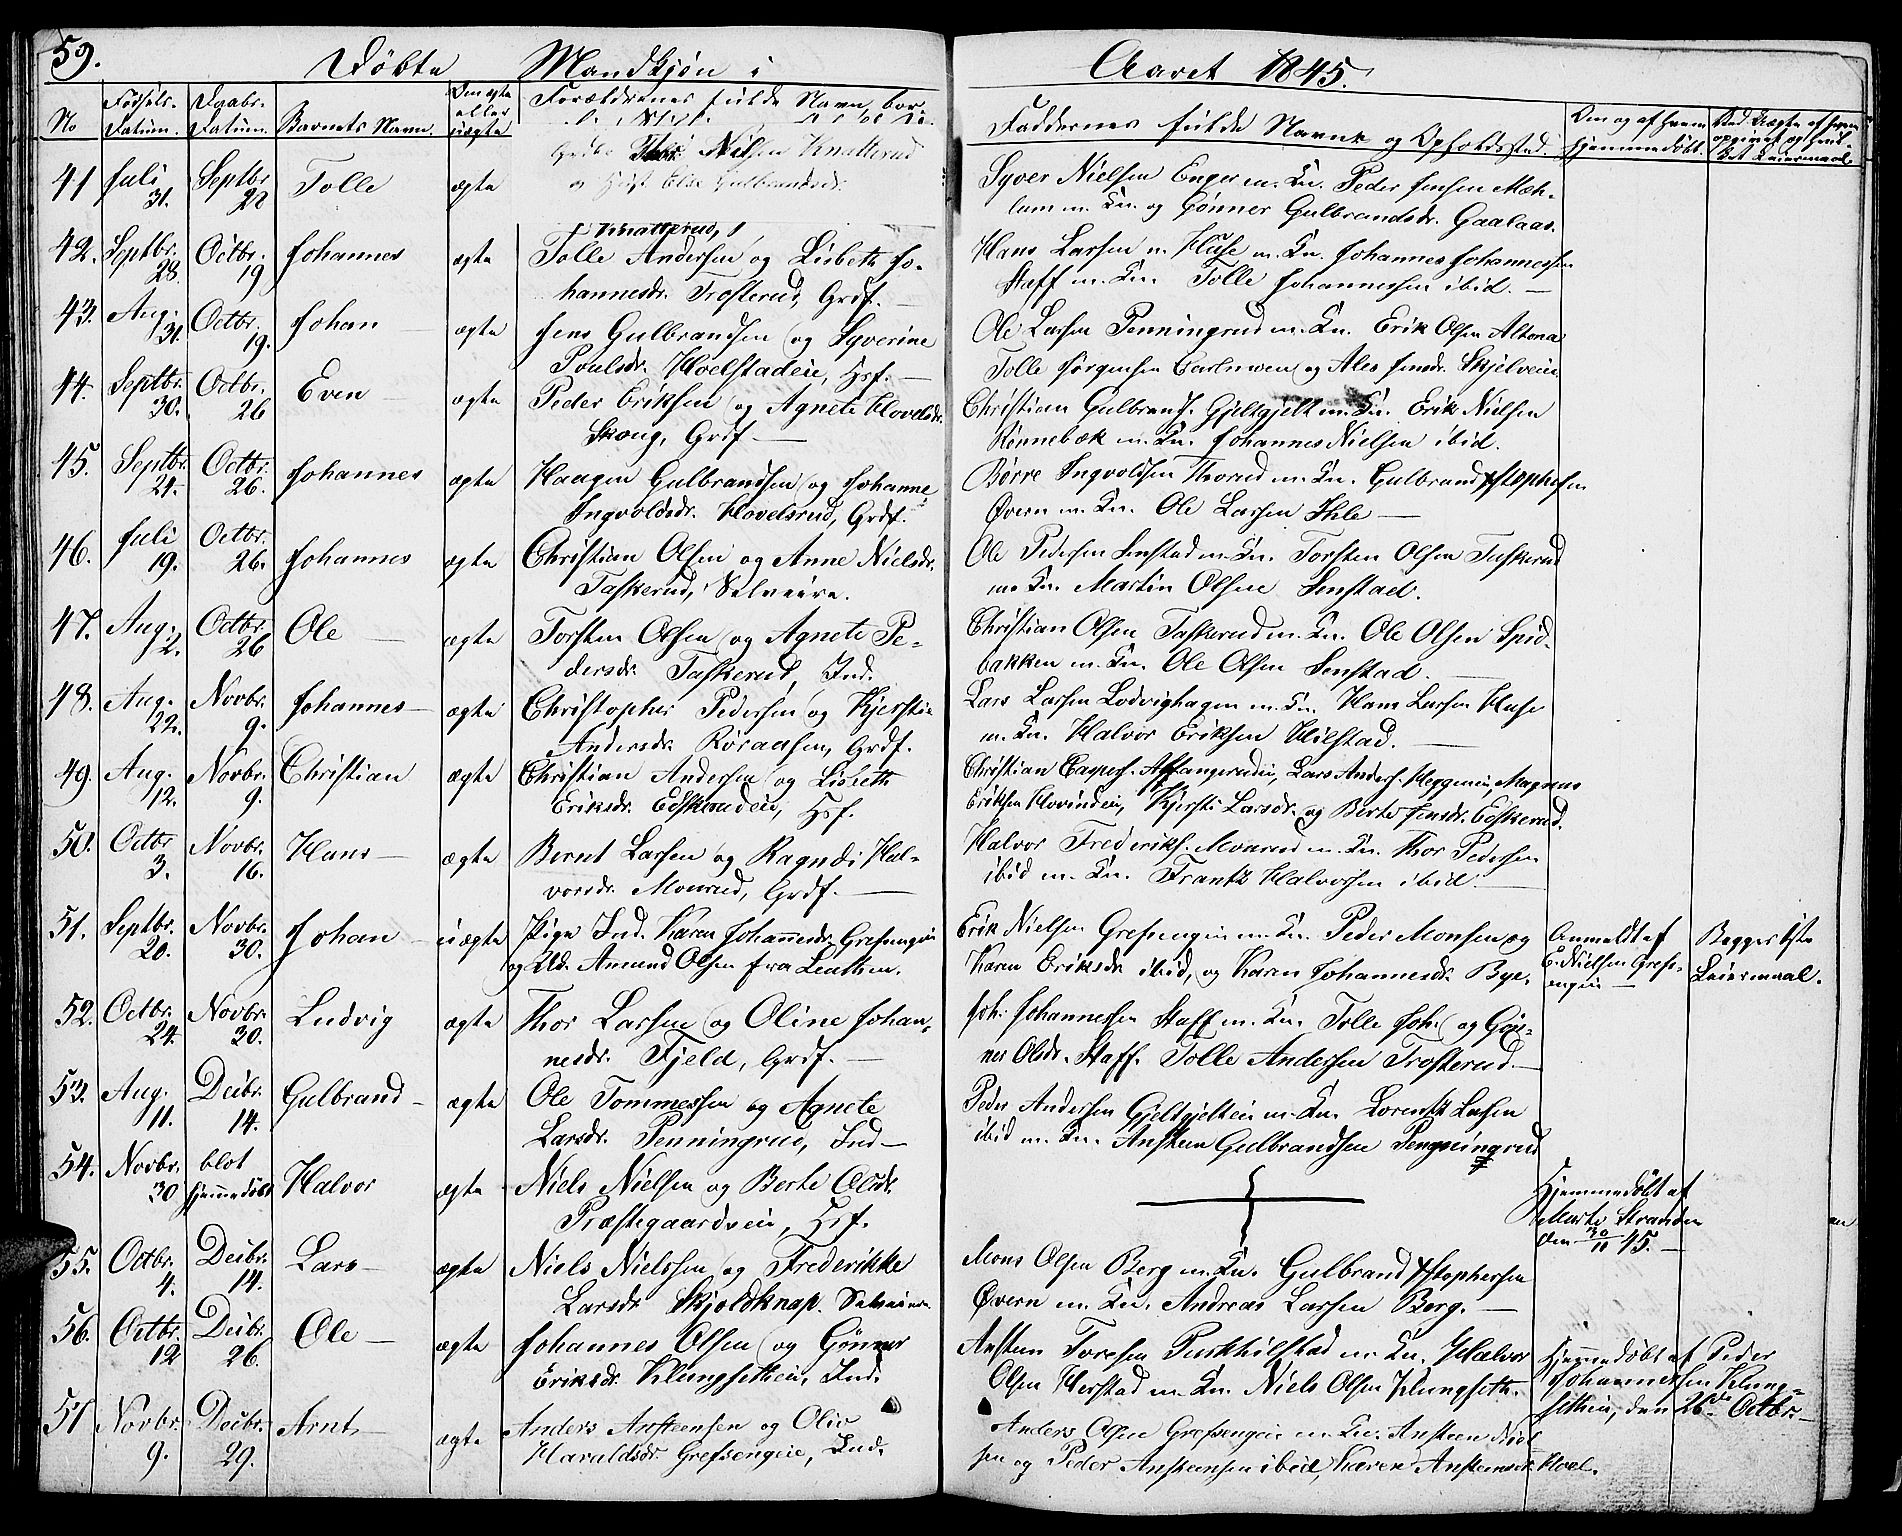 59.
Døbte Mandkjøn i Aaret 1845.
No Fødsels- Datum. Daabs- Datum. Barnets Navn. Om ægte eller uægte Forældrenes fulde Navn, bor-
Faddernes fulde Navne og Opholdsstad. Om og af hvem hjemmedøbt.
41 Juli 31. Septbr 28 Tolle ægte Nielsen Knatterud
og Else Gulbrandsdr.
Knatterud,
Syver Nielsen Enger m. Kn. Peder Jensen Mæh-
lum m. Kn. og Gønner Gulbrandsdr. Gaalaas.
42. Septbr. 28. Octbr. 19 Johannes ægte Tolle Andersen og Lisbeth Jo-
hannesdr. Trosterud, Grdf. —
Hans Larsen Huse m. Kn. Johannes Johannessen
Staff m. Kn. Tolle Johannessen ibid. —
43. Aug. 31. Octbr. 19. Johan — ægte Jens Gulbrandsen og Syverine
Poulsdr. Hoelstadeie, Hsf. —
Ole Larsen Penningrud m. Kn. Erik Olsen Altona
Tolle Jørgensen og Ales Jensdr. Skjelveien
44. Septbr. 30. Octbr. 26 Even — ægte Peder Eriksen og Agnete Hovelsdr.
Skoug, Grdf —
Christian Gulbrands. Gjeltgjelt m. Kn. Erik Nielsen
Rønnebæk m. Kn. Johannes Nielsen ibid.
45. Septbr. 21. Octbr. 26. Johannes ægte Haagen Gulbrandsen og Johanne
Ingvoldsdr. Hovelsrud, Grdf.
Børre Ingvoldsen Thorud m. Kn. Gulbrand Xstophersen
Øvern m. Kn. Ole Larsen Ihle —
46. Juli 19. Octbr. 26. Johannes ægte Christian Olsen og Anne Nielsdr.
Taskerud, Selveiere.
Ole Pedersen Senstad m. Kn. Torsten Olsen Taskerud
m. Kn. Martin Olsen Senstad.
47. Aug. 2. Octbr. 26 Ole — ægte Torsten Olsen og Agnete Pe-
dersdr. Taskerud, Ind.
Christian Olsen Taskerud m. Kn. Ole Olsen Spid-
bakken m. Kn. Ole Olsen Senstad. —
48. Aug. 22. Novbr. 9. Johannes — ægte Christopher Pedersen og Kjerstie
Andersdr. Røraasen, Grdf.
Lars Larsen Lodvighagen m. Kn. Hans Larsen Huse
m. Kn. Halvor Eriksen Hilstad. —
49. Aug. 12. Novbr. 9. Christian ægte Christian Andersen og Lisbeth
Eriksdr. Eeskerudeie, Hsf.
Christian Caspers. Affangerudeie, Lars Anders. Heggerie, Magnus
Eriksen Hovindeie, Kjersti Larsdr. og Berte Jensdr. Eeskerud.
50. Octbr 3. Novbr. 16. Hans — ægte Bernt Larsen og Ragndi Hal-
vorsdr. Monrud, Grdf. —
Halvor Frederiks. Monrud m. Kn. Thor Pedersen
ibid m. Kn. Frantz Halvorsen ibid. —
51. Septbr. 20. Novbr. 30. Johan — uægte Pige Ind. Karen Johannesdr. Grefsengeie
og Uld. Amund Olsen fra Leuthen.
Erik Nielsen Grefsengeie m. Kn. Peder Monsen og
Karen Eriksdr ibid, og Karen Johannesdr. Bye.
Anmeldt af
E. Nielsen Grefs-
engeie —
Begges 1ste
Leiermaal.
52. Octbr. 24. Novbr. 30. Ludvig ægte Thor Larsen og Oline Johan-
nesdr. Fjeld, Grdf. —
Joh. Johannessen Staff m. Kn. Tolle Joh. og Gøn-
ner Olsdr. Staff. Tolle Andersen Trosterud. —
53. Aug. 11. Decbr. 14. Gulbrand — ægte Ole Tommessen og Agnete
Larsdr. Penningrud, Ind —
Peder Andersen Gjeltgjelteie m. Kn. Lorentz Larsen
ibid m. Kn. Ansteen Gulbrandsen Pengningrud
54. Novbr. 30 blot hjemmedøbt Halvor ægte Niels Nielsen og Berte Olsdr.
Præstegaardseie, Hsf.
Hjemmedøbt af
Marte Stranden
den 30/11 45. —
55. Octbr. 4. Decbr. 14. Lars — ægte Niels Nielssen og Frederikke
Larsdr Skjoldknap. Selveiere
Mons Olsen Berg m. Kn. Gulbrand Xstophersen
Øvern m. Kn. Andreas Larsen Berg. —
56. Octbr. 12 Decbr. 26. Ole — ægte Johannes Olsen og Gønner
Eriksdr. Klungsetheie, Ind.
Ansteen Toresen m. Kn. Halvor
Olsen Herstad m. Kn. Niels Olsen Klungseth.
Hjemmedøbt af Peder
Johannessen Klung-
setheie, den 26de Octbr. —
57 Novbr. 9. Decbr. 29. Arnt — ægte Anders Ansteensen og Oliv
Haraldsdr. Grefsengeie, Ind.
Anders Olsen Grefsengeie m. Kn. Ansteen Niel-
sen og Peder Ansteensen ibid, Karen Ansteensdr. Hoel.